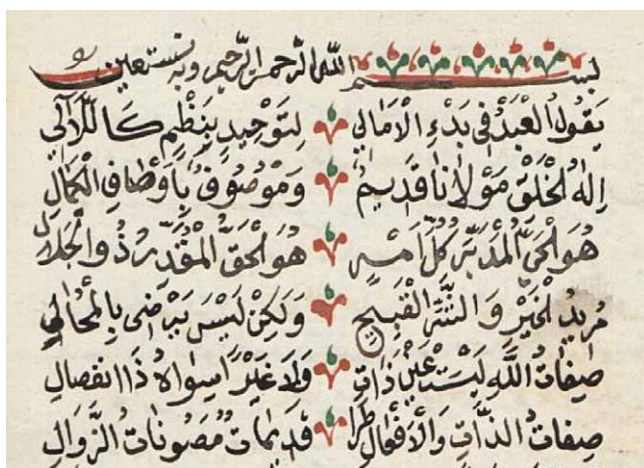 بسم الله الرحمن الرحيم وبه نستعين
يَقُولُ الْعَبْدُ فِي بَدْءِ الْاَمَالِي لِتَوْحِيدٍ بِنَظْمٍ كَاللَّآلِي
اِلٰهُ الْخَلْقِ مَوْلَانَا قَدِيمٌ وَمَوْصُوفٌ بِاَوْصَافِ الْكَمَالِ
هُوَ الْحَيُّ الْمُدَبِّرُ كُلَّ اَمْرٍ هُوَ الْحَقُّ الْمُقَدِّرُ ذُو الْجَلَالِ
مُرِيدُ الْخَيْرِ وَالشَّرِّ الْقَبِيحِ وَلٰكِنْ لَيْسَ يَرْضٰى بِالْمُحَالِ
صِفَاتُ اللّٰهِ لَيْسَتْ عَيْنَ ذَاتٍ وَلَا غَيْرًا سِوَاهُ ذَا انْفِصَالِ
صِفَاتُ الذَّاتِ وَالْاَفْعَالِ طُرًّا قَدِيمَاتٌ مَصُونَاتُ الزَّوَالِ